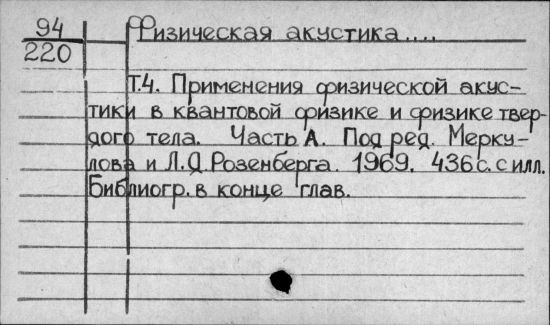 94
220
Физическая акустика....
Т.4. Применения физической акус-
тики в квантовой физике и физике твер-
дого тела. Часть А. Под ред. Мерку-
лова и Л.Д.Розенберга. 1969. 436с. с илл.
Библиогр. в конце глав.